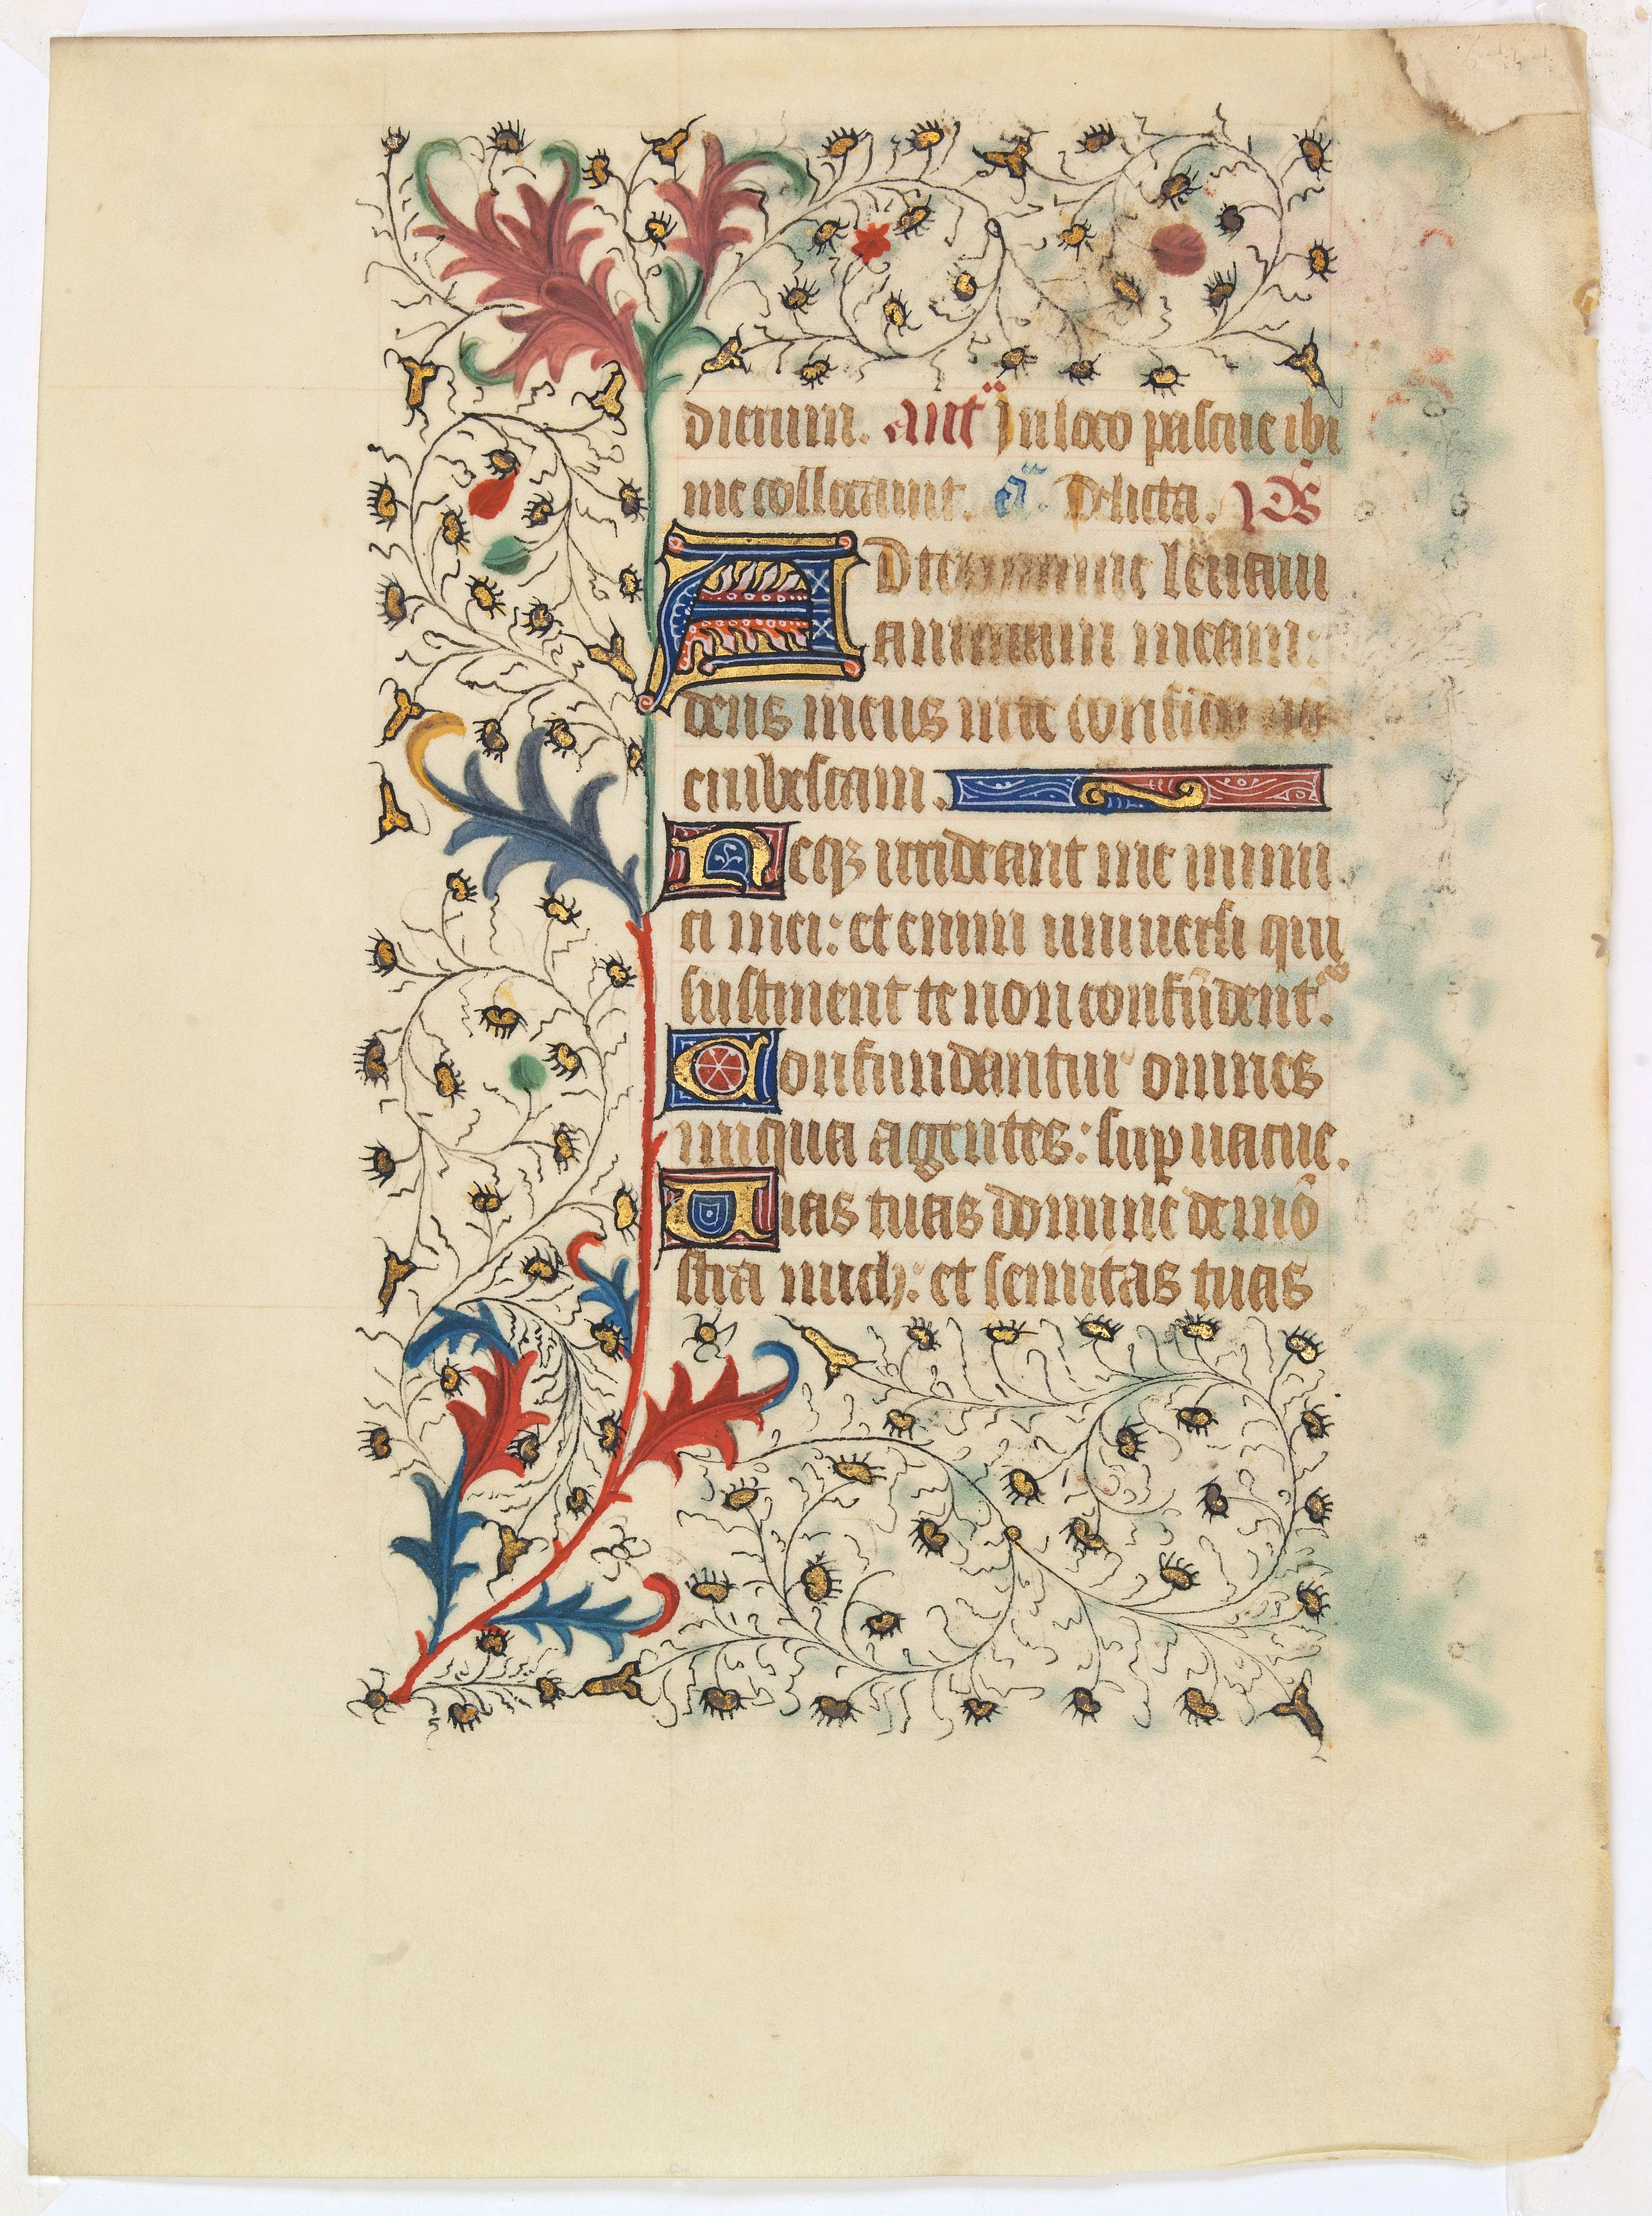 dierum. ant In loco pascue ibi
me collocavit. a. Delicta. ps
AD te domine levavi
animam meam:
deus meus in te confido no
erubescam.
Neqz irrideant me inimi
ci mei: et enim universi qui
sustinent te non confūdent.
Confundantur omnes
iniqua agentes: sup vacue.
Vias tuas domine demō
stra mich: et semitas tuas